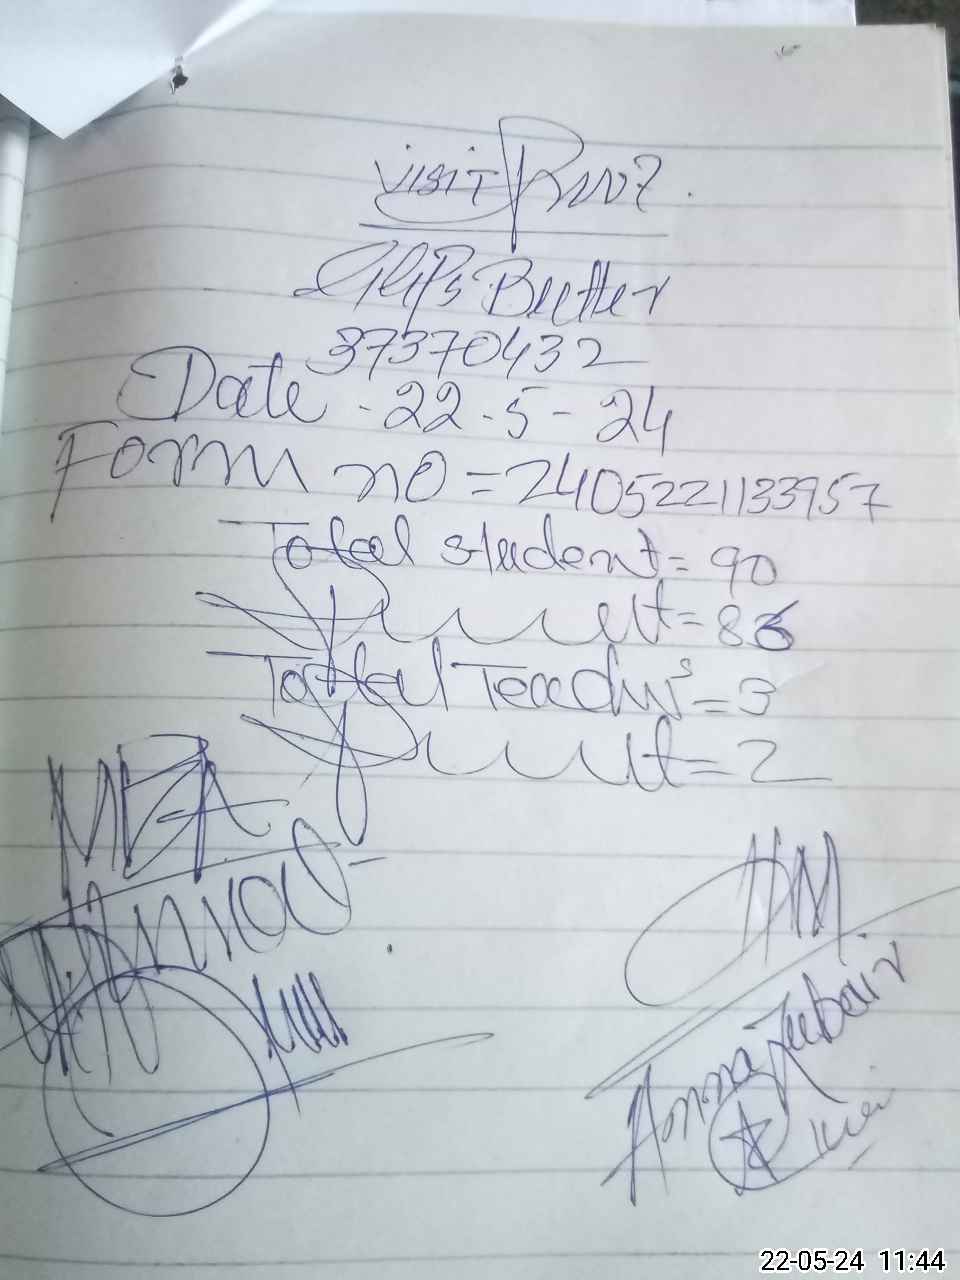 Visit
GGPS Butter
37370432
Date - 22-5-24
Form no = 2405221133957
Total student = 90
Present = 86
Total Teachers = 3
Present = 2
MEA
HM
Amna Zubair
22-05-24 11:44